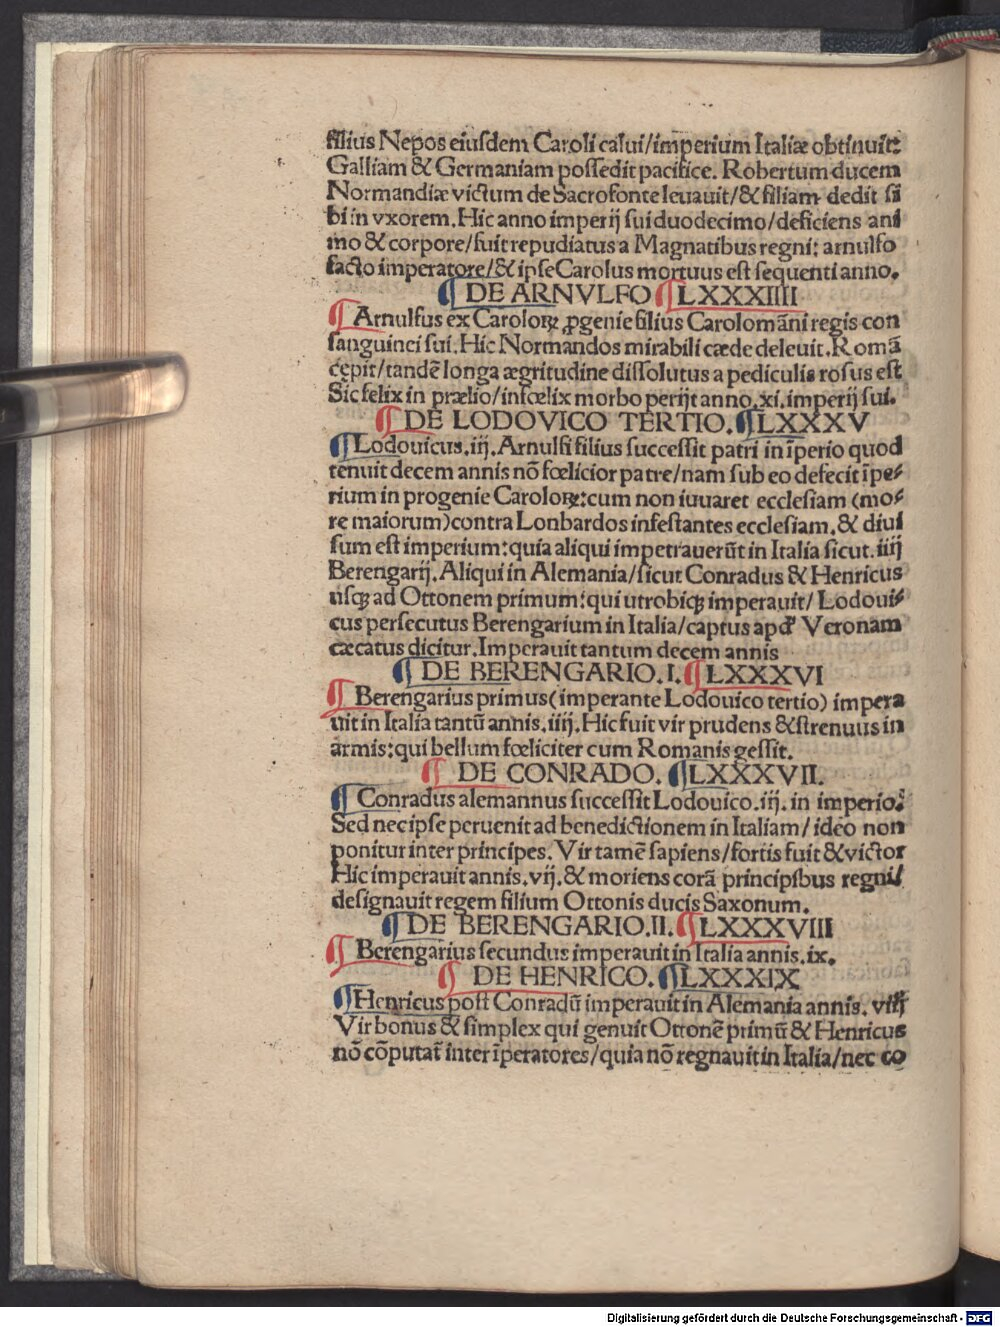 filius Nepos eiuſdem Caroli calui/imperium Italiæ obtinuit:
Galliam & Germaniam poſſedit pacifice. Robertum ducem
Normandiæ victum de Sacrofonte leuauit/& filiam dedit ſi
bi in vxorem. Hic anno imperij ſui duodecimo/deficiens ani
mo & corpore/fuit repudiatus a Magnatibus regni: arnulfo
facto imperatore/& ipſe Carolus mortuus eſt ſequenti anno.
¶ DE ARNVLFO ¶ LXXXIIII
¶ Arnulfus ex Caroloꝝ ꝓgenie filius Carolomāni regis con
ſanguinei ſui. Hic Normandos mirabili cæde deleuit. Romā
cępit/tandē longa ægritudine diſſolutus a pediculis roſus eſt
Sic felix in prælio/infœlix morbo perijt anno. xi. imperij ſui.
¶ DE LODOVICO TERTIO. ¶ LXXXV
¶ Lodouicus. iij. Arnulfi filius ſucceſſit patri in īperio quod
tenuit decem annis nō fœlicior patre/nam ſub eo defecit īpe⸗
rium in progenie Caroloꝝ: cum non iuuaret eccleſiam (mo⸗
re maiorum) contra Lonbardos infeſtantes eccleſiam. & diui
ſum eſt imperium: quia aliqui impetrauerūt in Italia ſicut. iiij
Berengarij. Aliqui in Alemania/ſicut Conradus & Henricus
uſqꝫ ad Ottonem primum: qui utrobiqꝫ imperauit/ Lodoui⸗
cus perſecutus Berengarium in Italia/captus apđ Veronam
cæcatus dicitur. Imperauit tantum decem annis
¶ DE BERENGARIO. I. ¶ LXXXVI
¶ Berengarius primus (imperante Lodouico tertio) impera
uit in Italia tantū annis. iiij. Hic fuit vir prudens & ſtrenuus in
armis: qui bellum fœliciter cum Romanis geſſit.
¶ DE CONRADO. ¶ LXXXVII.
¶ Conradus alemannus ſucceſſit Lodouico. iij. in imperio:
Sed nec ipſe peruenit ad benedictionem in Italiam/ ideo non
ponitur inter principes. Vir tamē ſapiens/fortis fuit & victor
Hic imperauit annis. vij. & moriens corā principibus regni/
deſignauit regem filium Ottonis ducis Saxonum.
¶ DE BERENGARIO. II. ¶ LXXXVIII
¶ Berengarius ſecundus imperauit in Italia annis. ix.
¶ DE HENRICO. ¶ LXXXIX
¶ Henricus poſt Conradū imperauit in Alemania annis. viij
Vir bonus & ſimplex qui genuit Ottonē primū & Henricus
nō cōputat̄ inter īperatores/quia nō regnauit in Italia/nec co
Digitalisierung gefördert durch die Deutsche Forschungsgemeinschaft - DFG